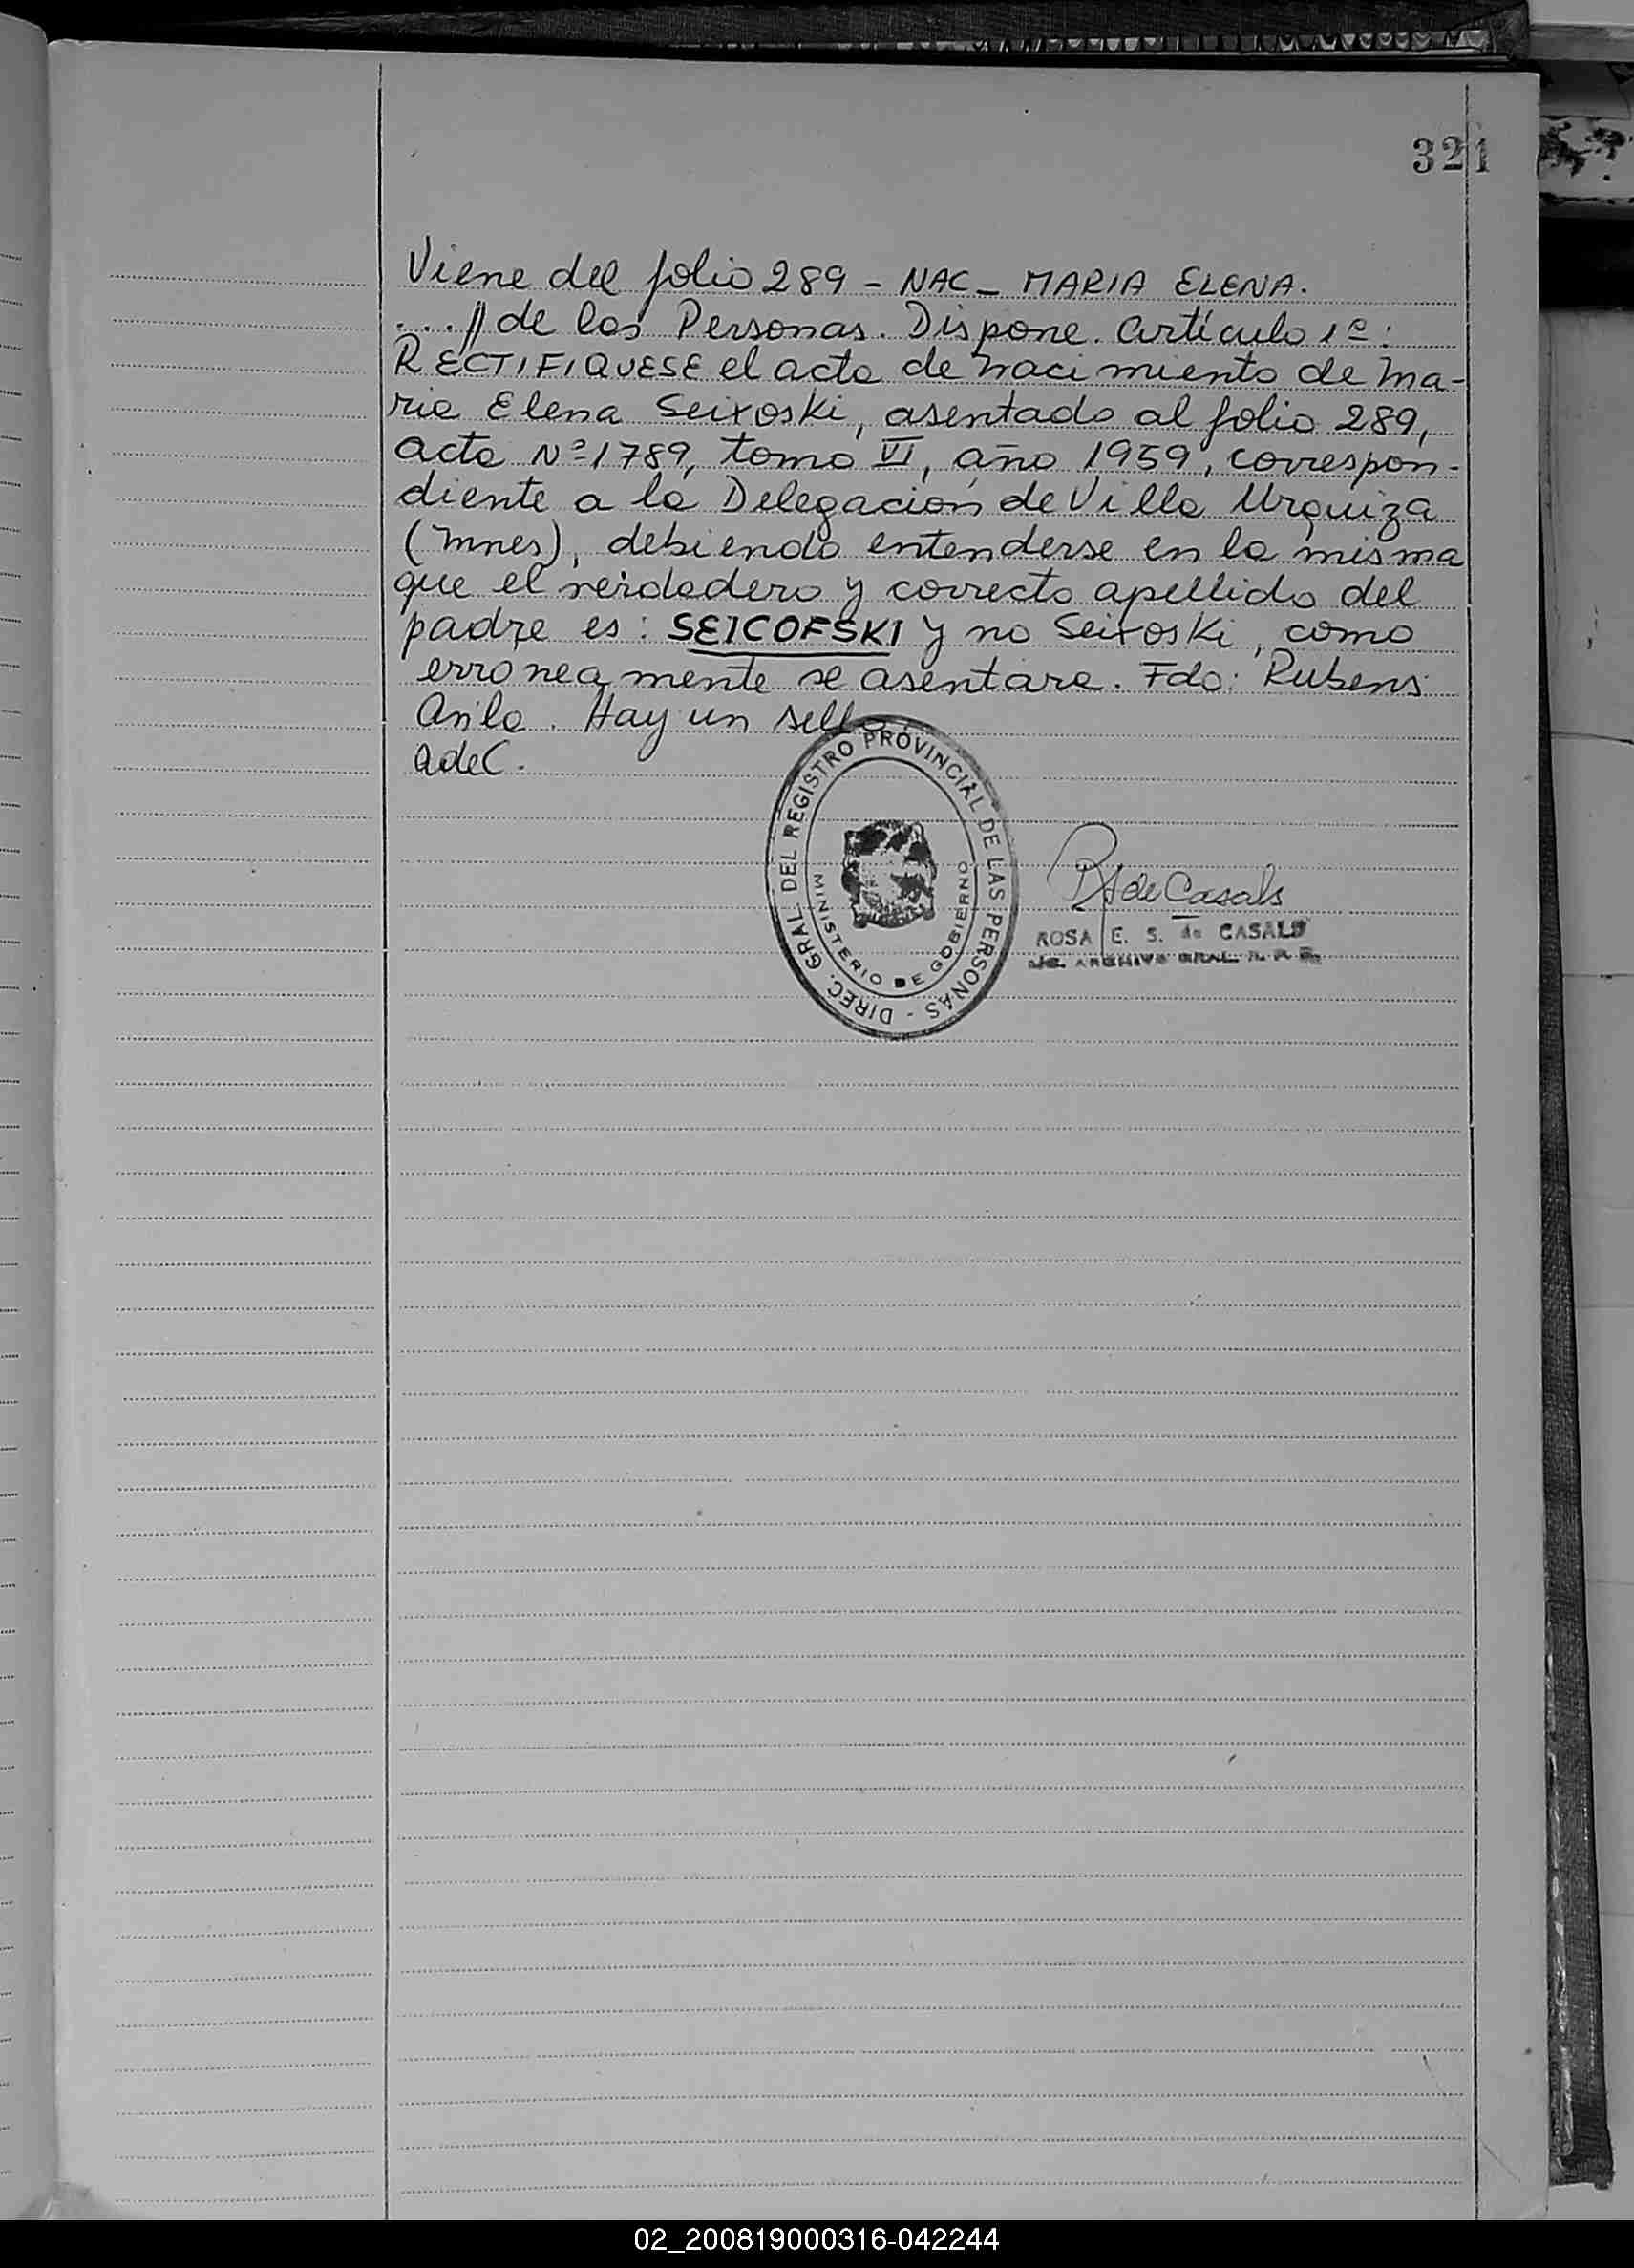 321
Viene del folio 289 - NAC - MARIA ELENA.
...// de las Personas. Dispone. Artículo 1º:
RECTIFIQUESE el acta de nacimiento de Ma-
ria Elena Seixoski, asentado al folio 289,
acta Nº 1789, tomo VI, año 1959, correspon-
diente a la Delegación de Villa Urquiza
(Mnes), debiendo entenderse en la misma
que el verdadero y correcto apellido del
padre es: SEICOFSKI y no Seixoski, como
erroneamente se asentara. Fdo: Rubens
Hay un sello
AdeC.
DIREC. GRAL. DEL REGISTRO PROVINCIAL DE LAS PERSONAS -
MINISTERIO DE GOBIERNO
de Casals
ROSA E. S. de CASALS
ARCHIVO GRAL. R. P. P.
02_200819000316-042244